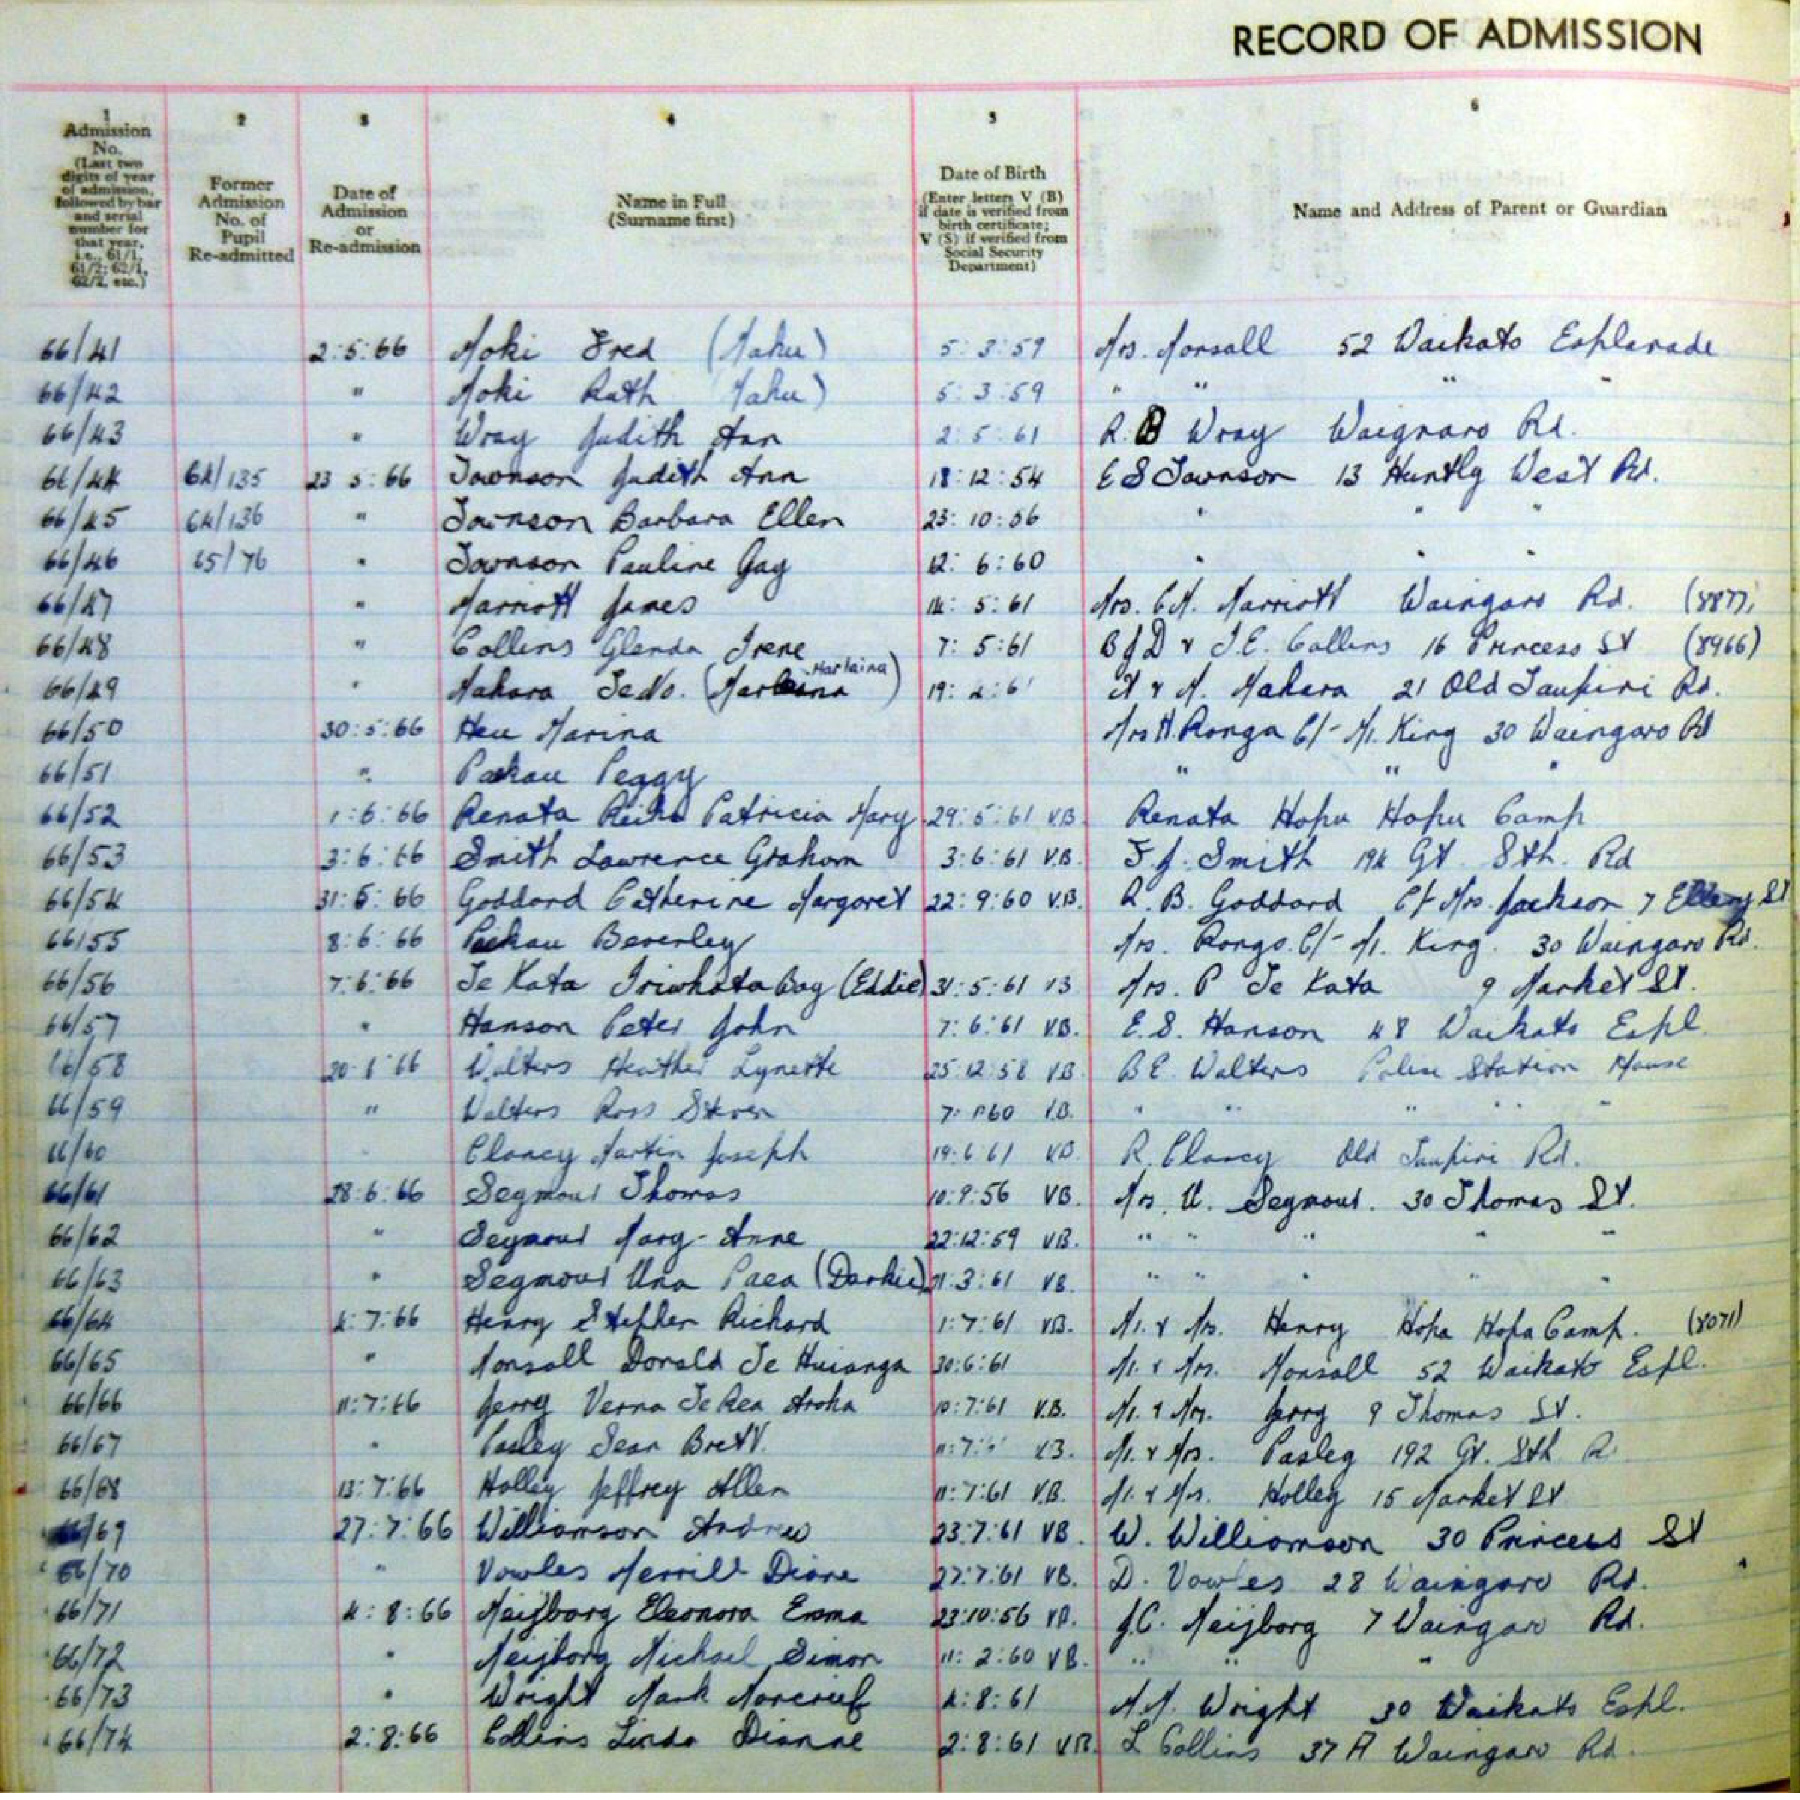 RECORD OF ADMISSION
1 2 3 4 5 6
Admission No. (Last two digits of year of admission, followed by bar and serial number for that year, i.e., 61/1, 61/2; 62/1, 62/2, etc.)
Former Admission No. of Pupil Re-admitted
Date of Admission or Re-admission
Name in Full (Surname first)
Date of Birth (Enter letters V (B) if date is verified from birth certificate; V (S) if verified from Social Security Department)
Name and Address of Parent or Guardian
66/41 2:5:66 Moki Fred (Mahu) 5:3:59 Mrs. Monsall 52 Waikato Esplanade
66/42 " Moki Ruth Mahu) 5:3:59 " " " "
66/43 " Wray Judith Ann 2:5:61 R.B Wray Waignaro Rd.
66/44 64/135 23 5:66 Townson Judith Ann 18:12:54 E S Townson 13 Huntly West Rd.
66/45 64/136 " Townson Barbara Ellen 23:10:56 " " "
66/46 65/76 " Townson Pauline Gay 12:6:60 " " "
66/47 " Marriott James 14:5:61 Mrs. C.M. Marriott Waingaro Rd. (8877)
66/48 " Collins Glenda Irene 7:5:61 B J D & I.E. Collins 16 Princess St (8966)
66/49 " Mahara (Marlaina) 19: M. Mahara 21 Old Taupiri Rd.
66/50 30:5:66 Heu Marina Mrs H. Ronga C/- M. King 30 Waingaro Rd
66/51 " Peggy " " "
66/52 1:6:66 Renata Patricia Mary 29:5:61 V.B. Renata Hopu Hopu Camp
66/53 3:6:66 Smith Lawrence Graham 3:6:61 V.B. F.J. Smith 194 Gt Sth. Rd
66/54 31:5:66 Goddard Catherine Margaret 22:9:60 V.B. R.B. Goddard C/- Mrs. Jackson 7 St
66/55 8:6:66 Beverley Mrs. Rongo C/- M. King. 30 Waingaro Rd.
66/56 7:6:66 Te Kata Bay (Eddie) 31:5:61 VB Mrs. P Te Kata 9 Market St.
66/57 " Hanson Peter John 7:6:61 VB. E.S. Hanson 48 Waikato Espl.
66/58 20 66 Walters Heather Lynette 25:12:58 VB B E Walters Police Station House
66/59 " Walters Ross Steven 7: 60 V.B. " " " " "
66/60 Clancy Martin Joseph 19:6:61 VB R. Clancy Old Taupiri Rd.
66/61 28:6:66 Seymour Thomas 10:9:56 VB. Mrs. U. Seymour. 30 Thomas St.
66/62 " Seymour Mary-Anne 22:12:59 VB. " " " " "
66/63 " Seymour Una Paea (Darkie) 11:3:61 VB. " " " " "
66/64 4:7:66 Henry Stephen Richard 1:7:61 VB. Mr. & Mrs. Henry Hopa Hopa Camp. (8071)
66/65 " Monsall Donald Te Huianga 30:6:61 Mr. & Mrs. Monsall 52 Waikato Espl.
66/66 11:7:66 Jerry Verna Te Rea Aroha 10:7:61 V.B. Mr. & Mrs. Jerry 9 Thomas St.
66/67 " Pasley Sean Brett. 11:7: VB. Mr. & Mrs. Pasley 192 Gt. Sth
66/68 13:7:66 Holley Jeffrey Allen 11:7:61 V.B. Mr. & Mrs. Holley 15 Market St
66/69 27:7:66 Williamson Andrew 23:7:61 VB. W. Williamson 30 Princess St
66/70 " Vowles Merrill Diane 27:7:61 VB. D. Vowles 28 Waingaro Rd.
66/71 4:8:66 Meijborg Eleonora Emma 23:10:56 VB. J.C. Meijborg 7 Waingaro Rd.
66/72 " Meijborg Michael Simon 11:2:60 VB. " " "
66/73 " Wright Mark Moncrief 4:8:61 M.M. Wright 30 Waikato Espl.
66/74 2:8:66 Collins Linda Dianne 2:8:61 VB. L Collins 37A Waingaro Rd.